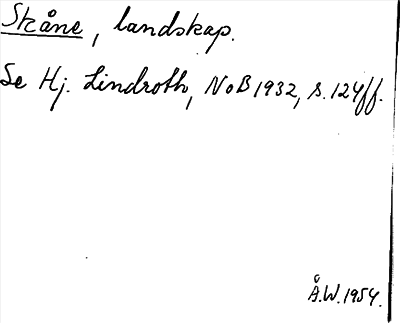 Skåne, landskap.
Se Hj. Lindroth, NoB 1932, s. 124ff.
Å.W. 1954.